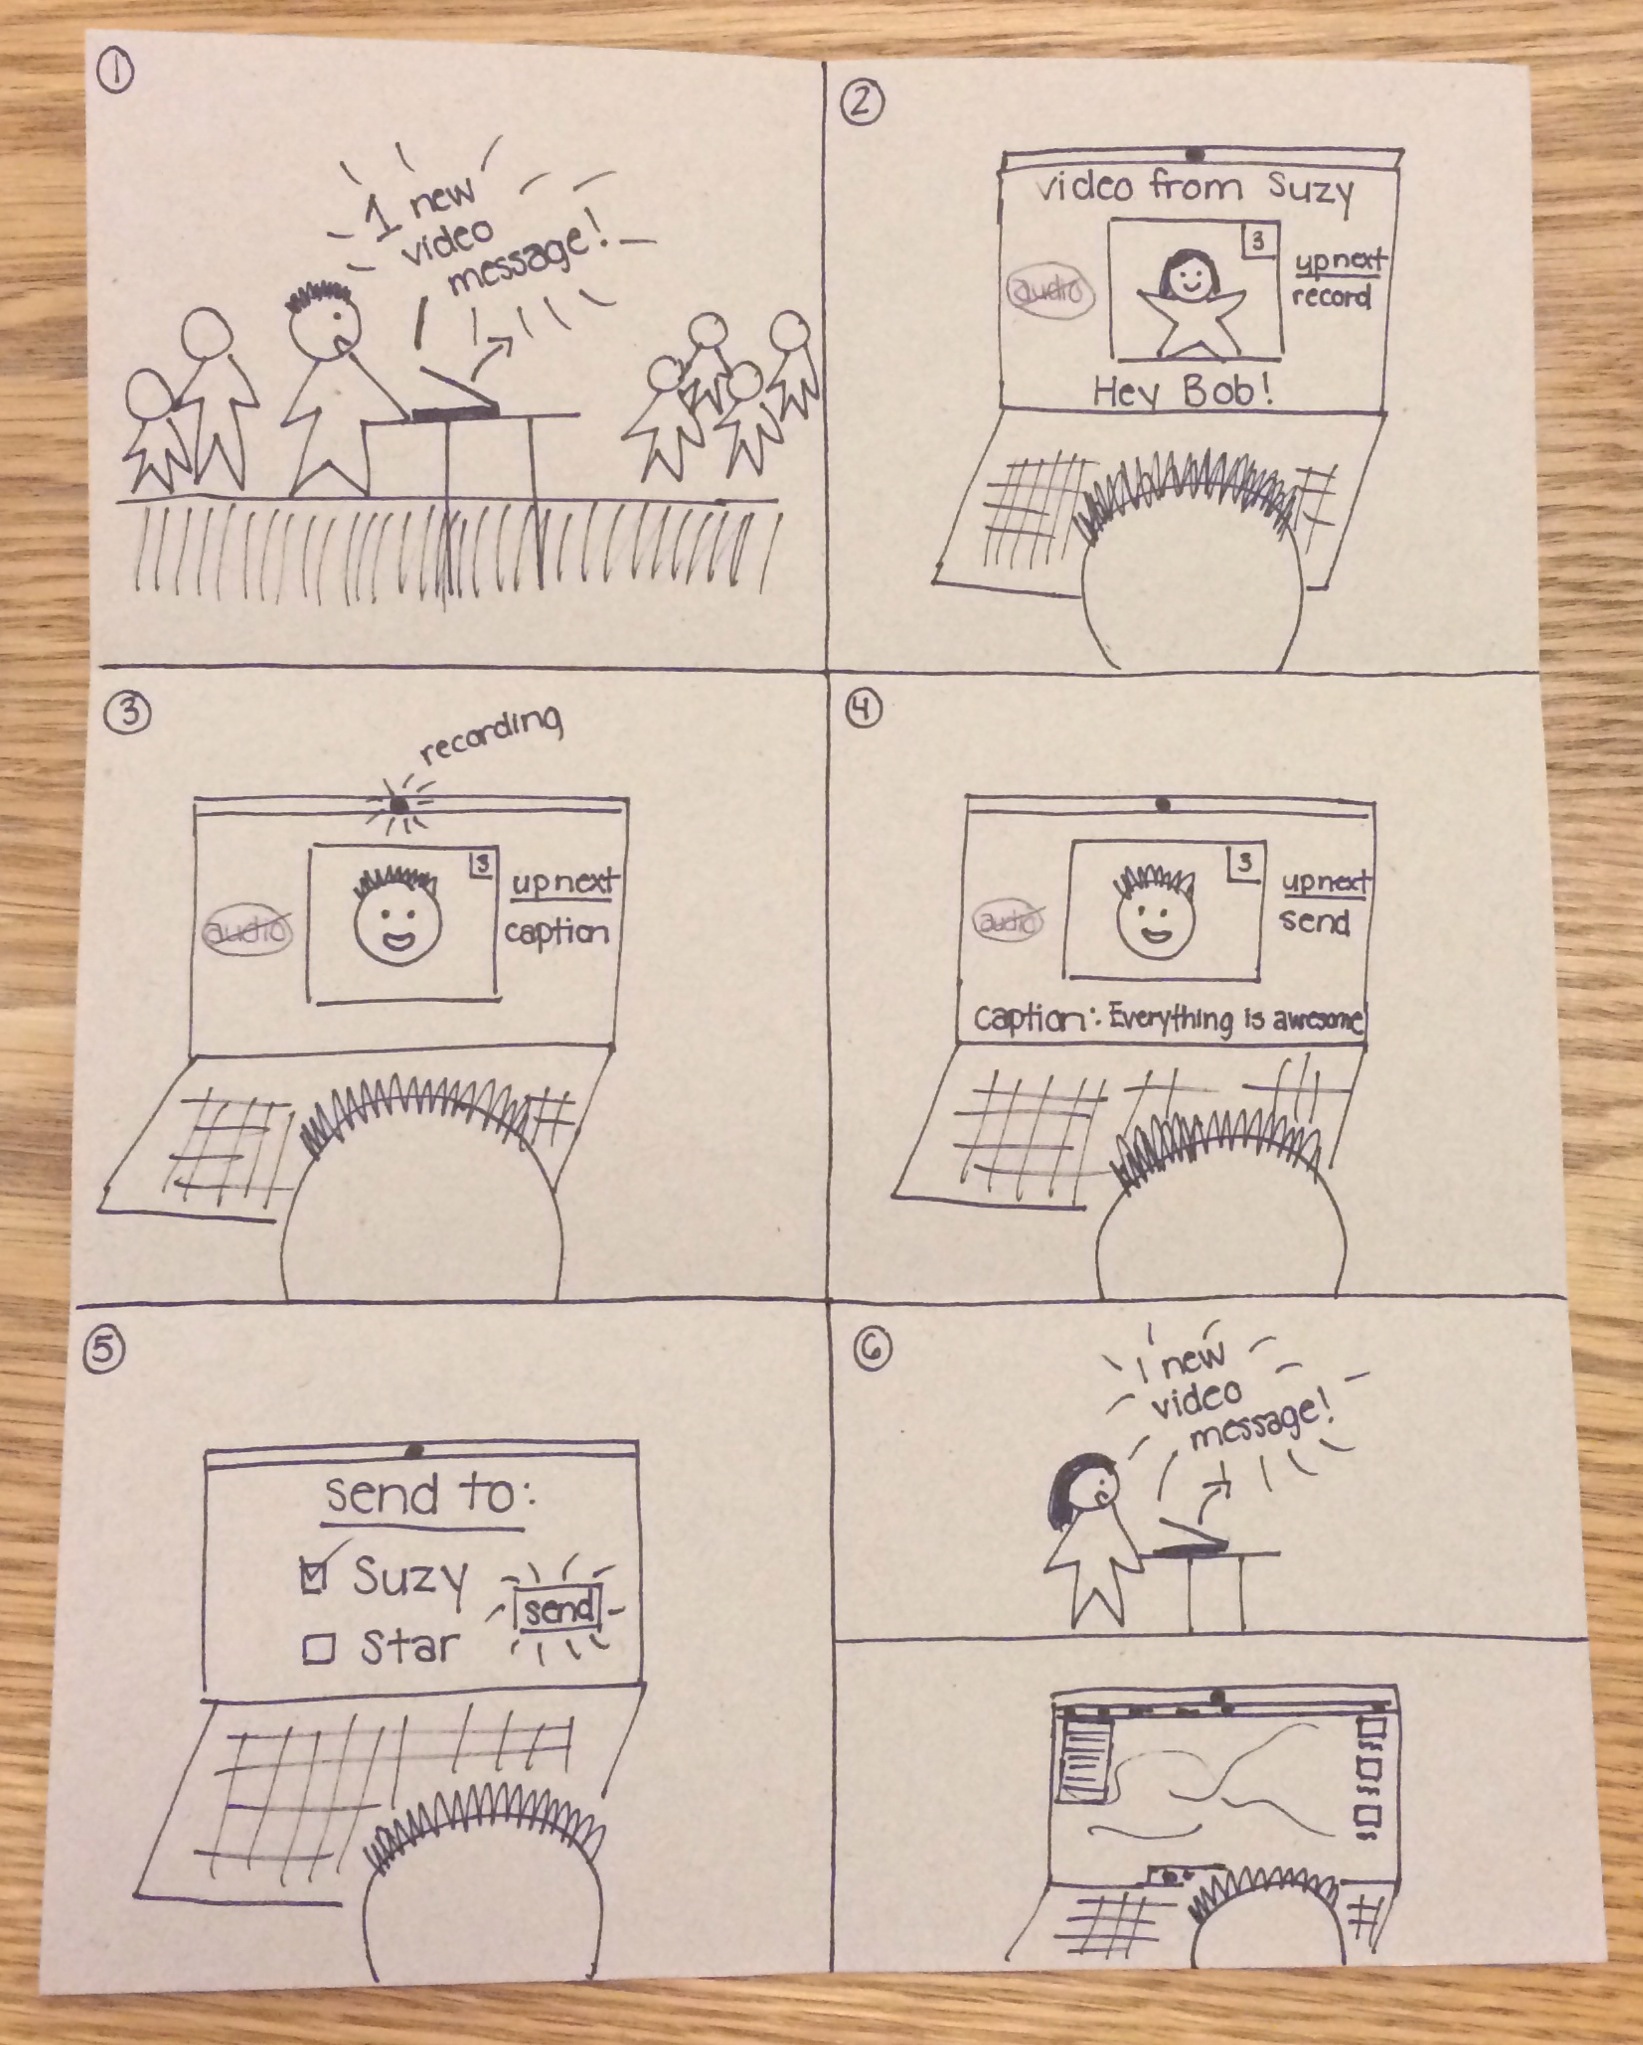 1
1 new
video
message!
2
video from Suzy
3
audio
upnext
record
Hey Bob!
3
recording
3
audio
upnext
caption
4
3
audio
upnext
send
caption: Everything is awesome
5
send to:
Suzy
send
Star
6
1 new
video
message!